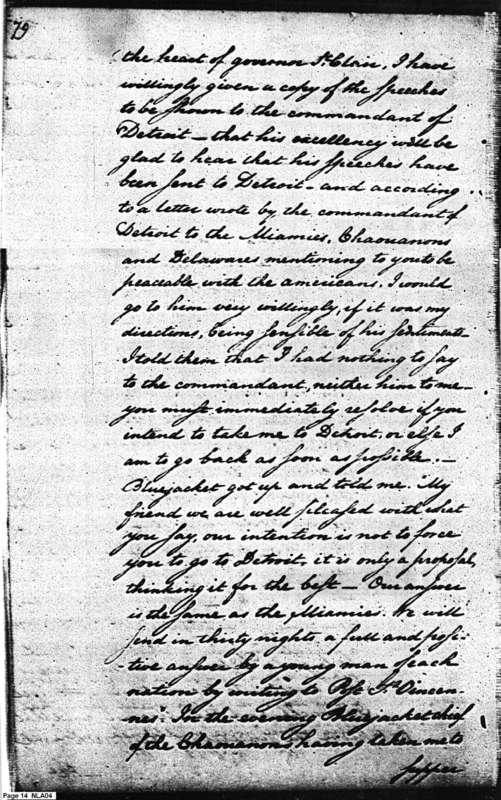 79
the heart of governor St. Clair, I have
willingly given a copy of the speeches
to be shown to the commandant of
Detroit — that his excellency will be
glad to hear that his speeches have
been sent to Detroit – and according
to a letter wrote by the commandant of
Detroit to the Miamies, Chaouanons
and Delawares mentioning to you to be
peaceable with the americans, I would
go to him very willingly, if it was my
directions, being sensible of his sentiments –
I told them that I had nothing to say
to the commandant, neither him to me –
you must immediately resolve if you
intend to take me to Detroit, or else I
am to go back as soon as possible. —
Bluejacket got up and told me. My
friend we are well pleased with what
you say, our intention is not to force
you to go to Detroit, it is only a proposal,
thinking it for the best — Our answer
is the same as the Miamies. We will
send in thirty nights a full and posi-
-tive answer by a young man of each
nation by writing to Post St. Vincen-
nes. In the evening Bluejacket chief
of the Chaouanons having taken me to
supper
Page 14 NLA04